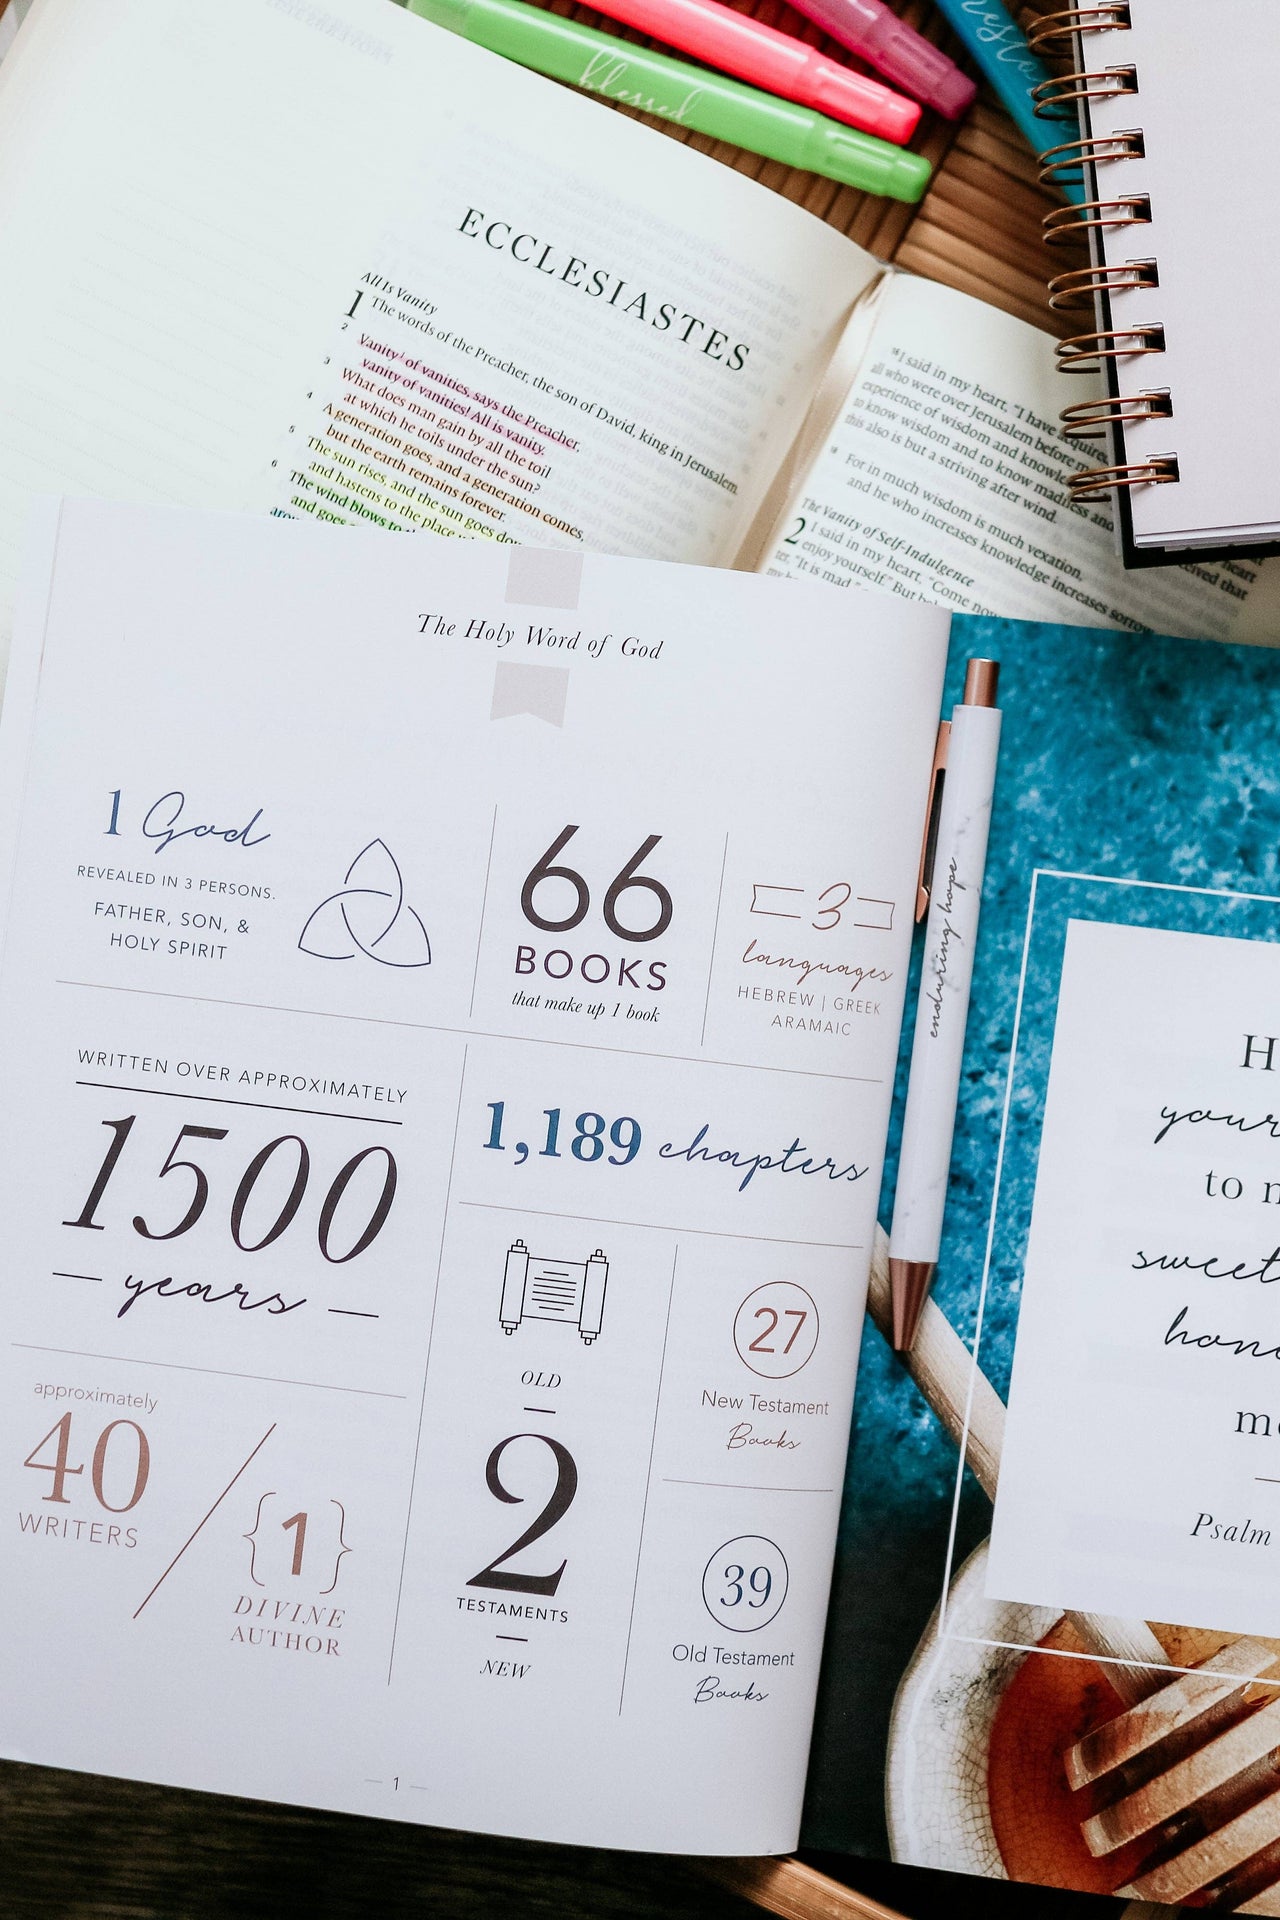 blessed
ECCLESIASTES
All Is Vanity
1 The words of the Preacher, the son of David, king in Jerusalem.
2 Vanity of vanities, says the Preacher,
vanity of vanities! All is vanity.
3 What does man gain by all the toil
at which he toils under the sun?
4 A generation goes, and a generation comes,
but the earth remains forever.
5 The sun rises, and the sun goes down,
and hastens to the place
6 The wind blows to
and goes
16 "I said in my heart, "I have acquired
all who were over Jerusalem before me,
experience of wisdom and knowledge
to know wisdom and to know madness and
this also is but a striving after wind.
18 For in much wisdom is much vexation,
and he who increases knowledge increases sorrow.
The Vanity of Self-Indulgence
2 I said in my heart, "Come now
enjoy yourself." But
"It is mad."
heart
that
The Holy Word of God
1 God
REVEALED IN 3 PERSONS.
FATHER, SON, &
HOLY SPIRIT
66
BOOKS
that make up 1 book
3
languages
HEBREW | GREEK
ARAMAIC
WRITTEN OVER APPROXIMATELY
1500
years
1,189 chapters
approximately
40
WRITERS
{1}
DIVINE
AUTHOR
OLD
2
TESTAMENTS
NEW
27
New Testament
Books
39
Old Testament
Books
1
enduring hope
your
to
sweet
Psalm